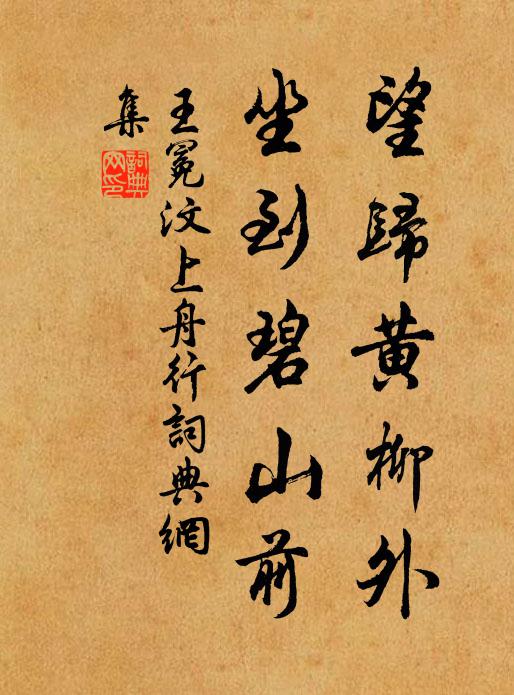 望歸黃柳外
坐到碧山前
王冕汶上舟行詞典網
集
詞典網印